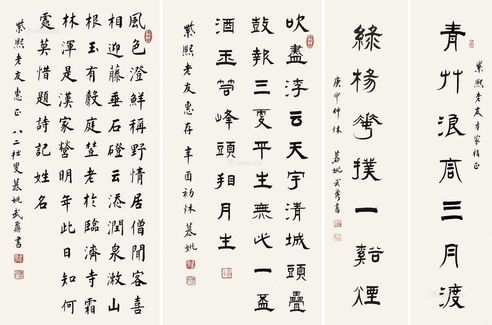 青艸浪高三月渡
紫熙老友方家指正
綠楊花撲一谿煙
庚申仲秋 慕姚
吹盡浮云天宇清城頭疊
鼓報三更平生無此一盃
酒玉筍峰頭相月生
紫熙老友惠存 辛酉初秋 慕姚
風色澄鮮稱野情居僧聞客喜
相迎藤垂石磴云添潤泉漱山
根玉有殸庭尌老於臨濟寺霜
林渾是漢家營明年此日知何
處莫惜題詩記姓名
紫熙老友惠正 八二叟慕姚武書